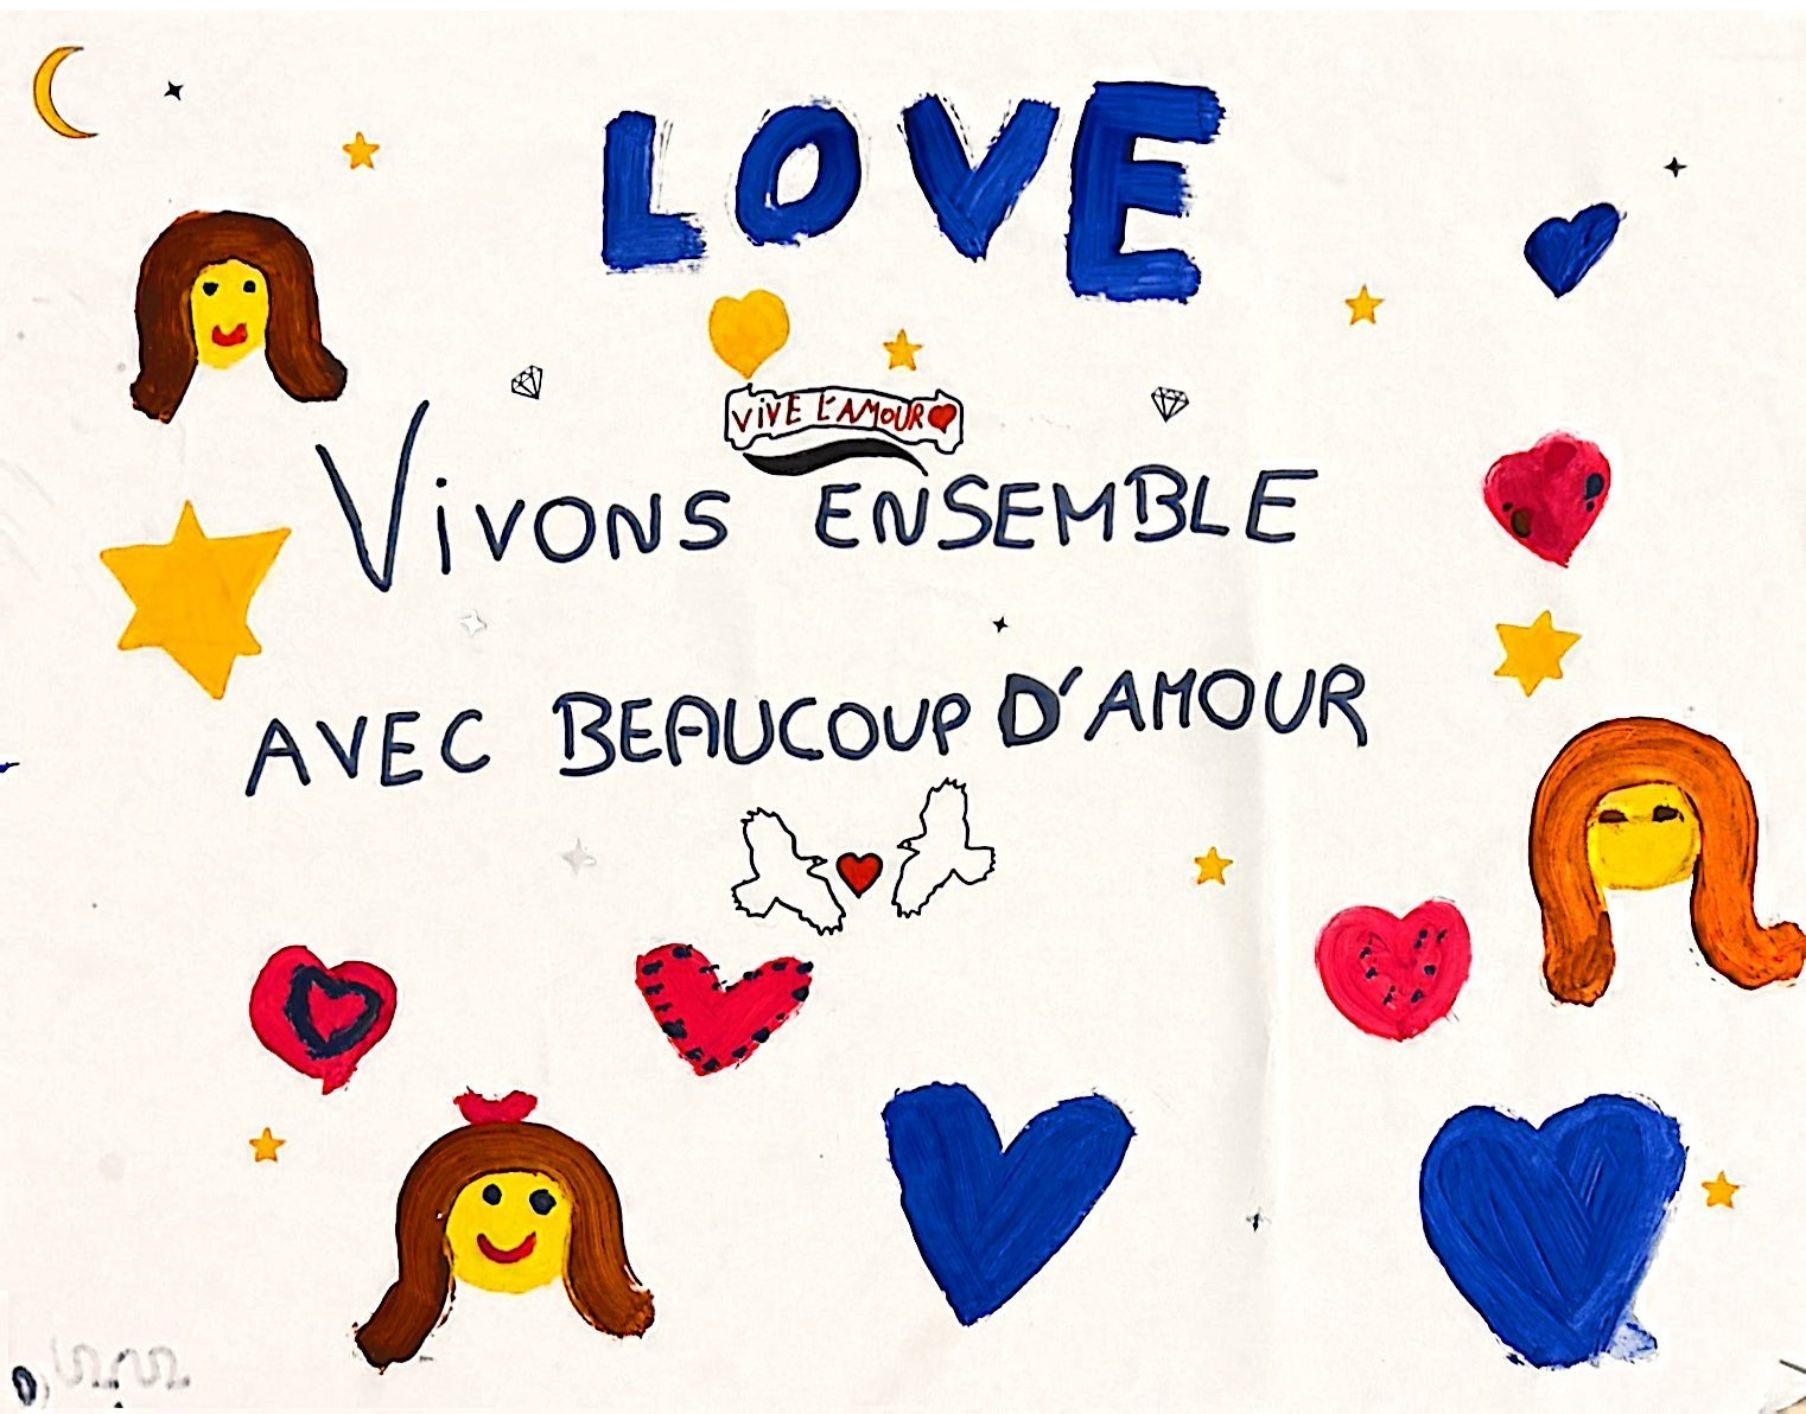 LOVE
ViVE L'AMOUR
ViVONS ENSEMBLE
AVEC BEAUCOUP D'AMOUR